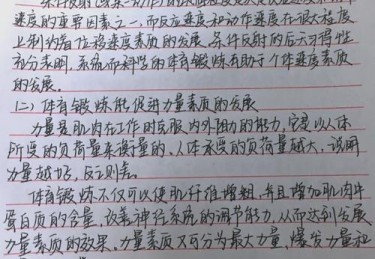 速度的重要因素之一,而反应速度和动作速度在很大程度
上制约着位移速度素质的发展。条件反射的后天习得性
充分表明,系统而科学的体育锻炼有助于个体速度素质
的发展。
(二)体育锻炼能促进力量素质的发展
力量是肌肉在工作时克服内外阻力的能力,它是以人体
所受的负荷量来衡量的。人体承受的负荷量越大,说明
力量越好,反之则差。
体育锻炼不仅可以使肌纤维增粗,并且增加肌肉中
蛋白质的含量,改善神经系统的调节能力,从而达到发展
力量素质的效果。力量素质又可分为最大力量,爆发力量和